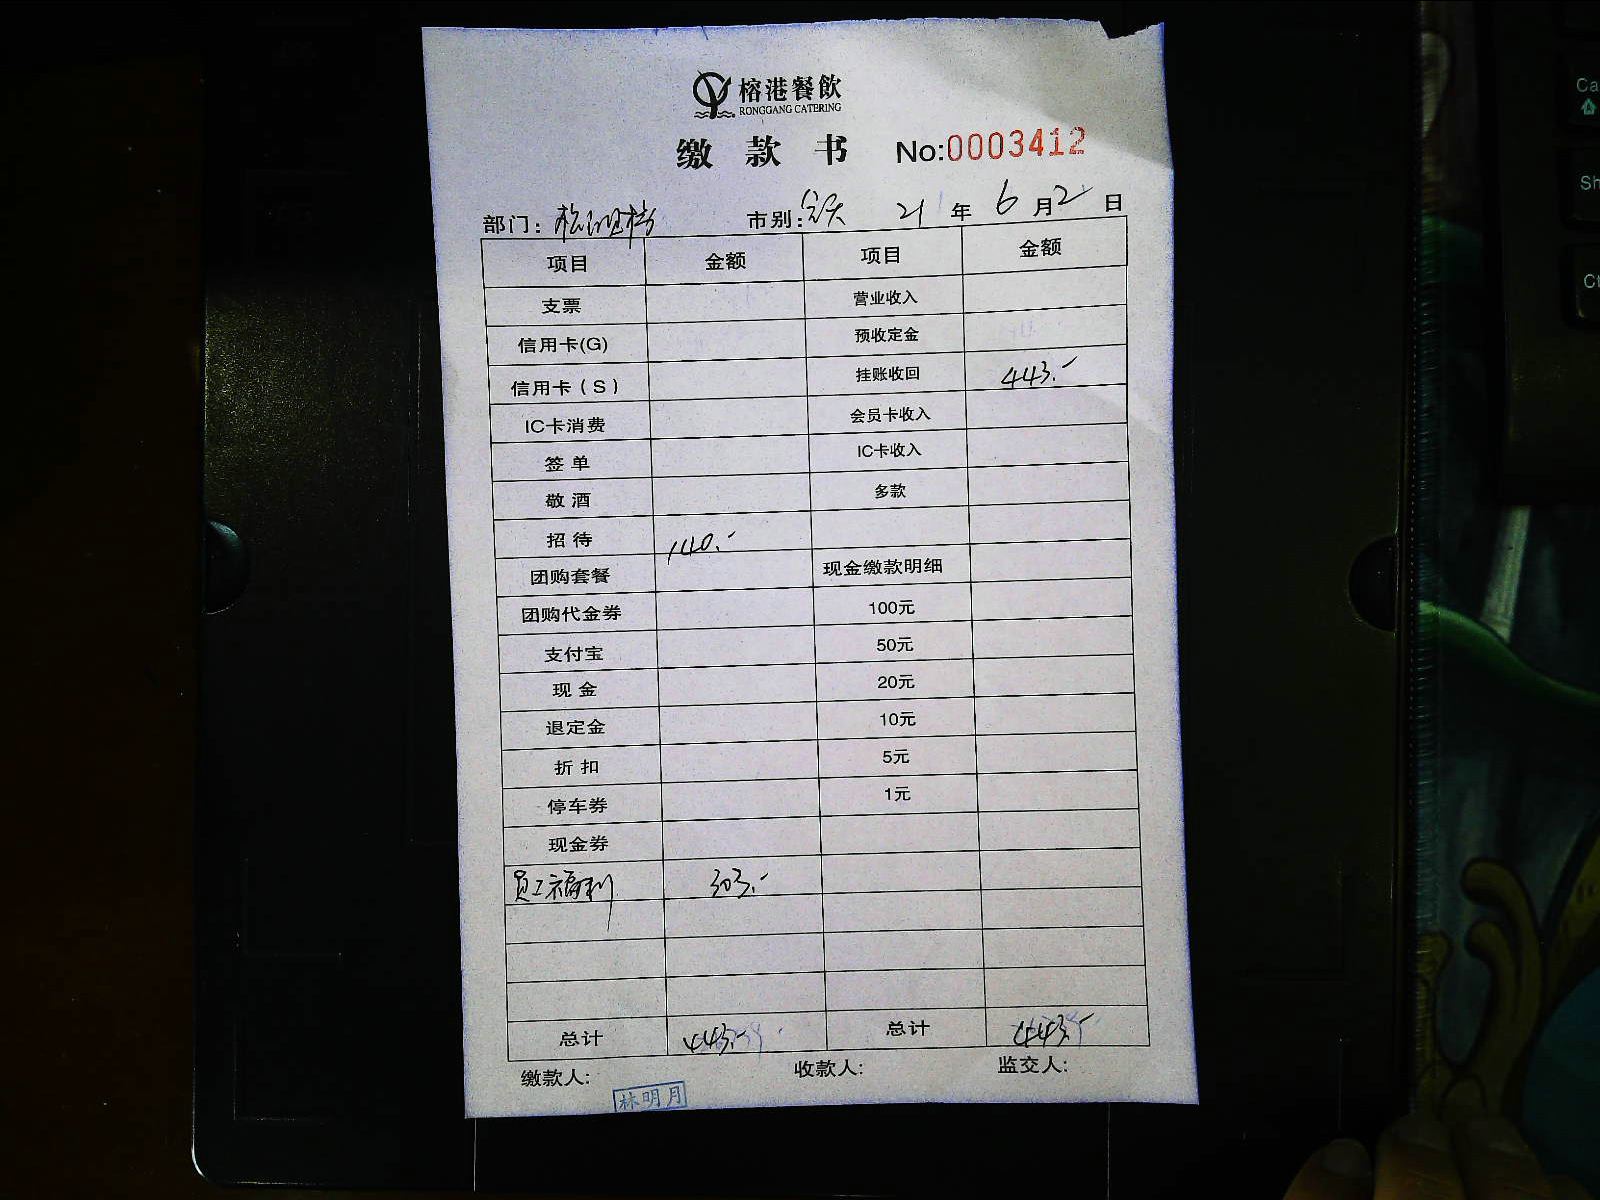 榕港餐飲
RONGGANG CATERING
缴款书 No:0003412
部门: 市别: 全天 21年6月2日
项目 金额 项目 金额
支票 营业收入
信用卡(G) 预收定金
信用卡(S) 挂账收回 443.-
IC卡消费 会员卡收入
签单 IC卡收入
敬酒 多款
招待 140.-
团购套餐 现金缴款明细
团购代金券 100元
支付宝 50元
现金 20元
退定金 10元
折扣 5元
停车券 1元
现金券
员工福利 303.-
总计 443.- 总计 443.-
缴款人: 收款人: 监交人:
林明月
Ca
Sh
Ct